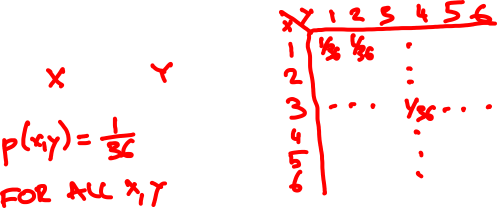 X Y
p(x,y) = 1/36
FOR ALL X, Y
X Y 1 2 3 4 5 6
1 1/36 1/36 .
2 :
3 ... 1/36 ...
4 .
5 .
6 .